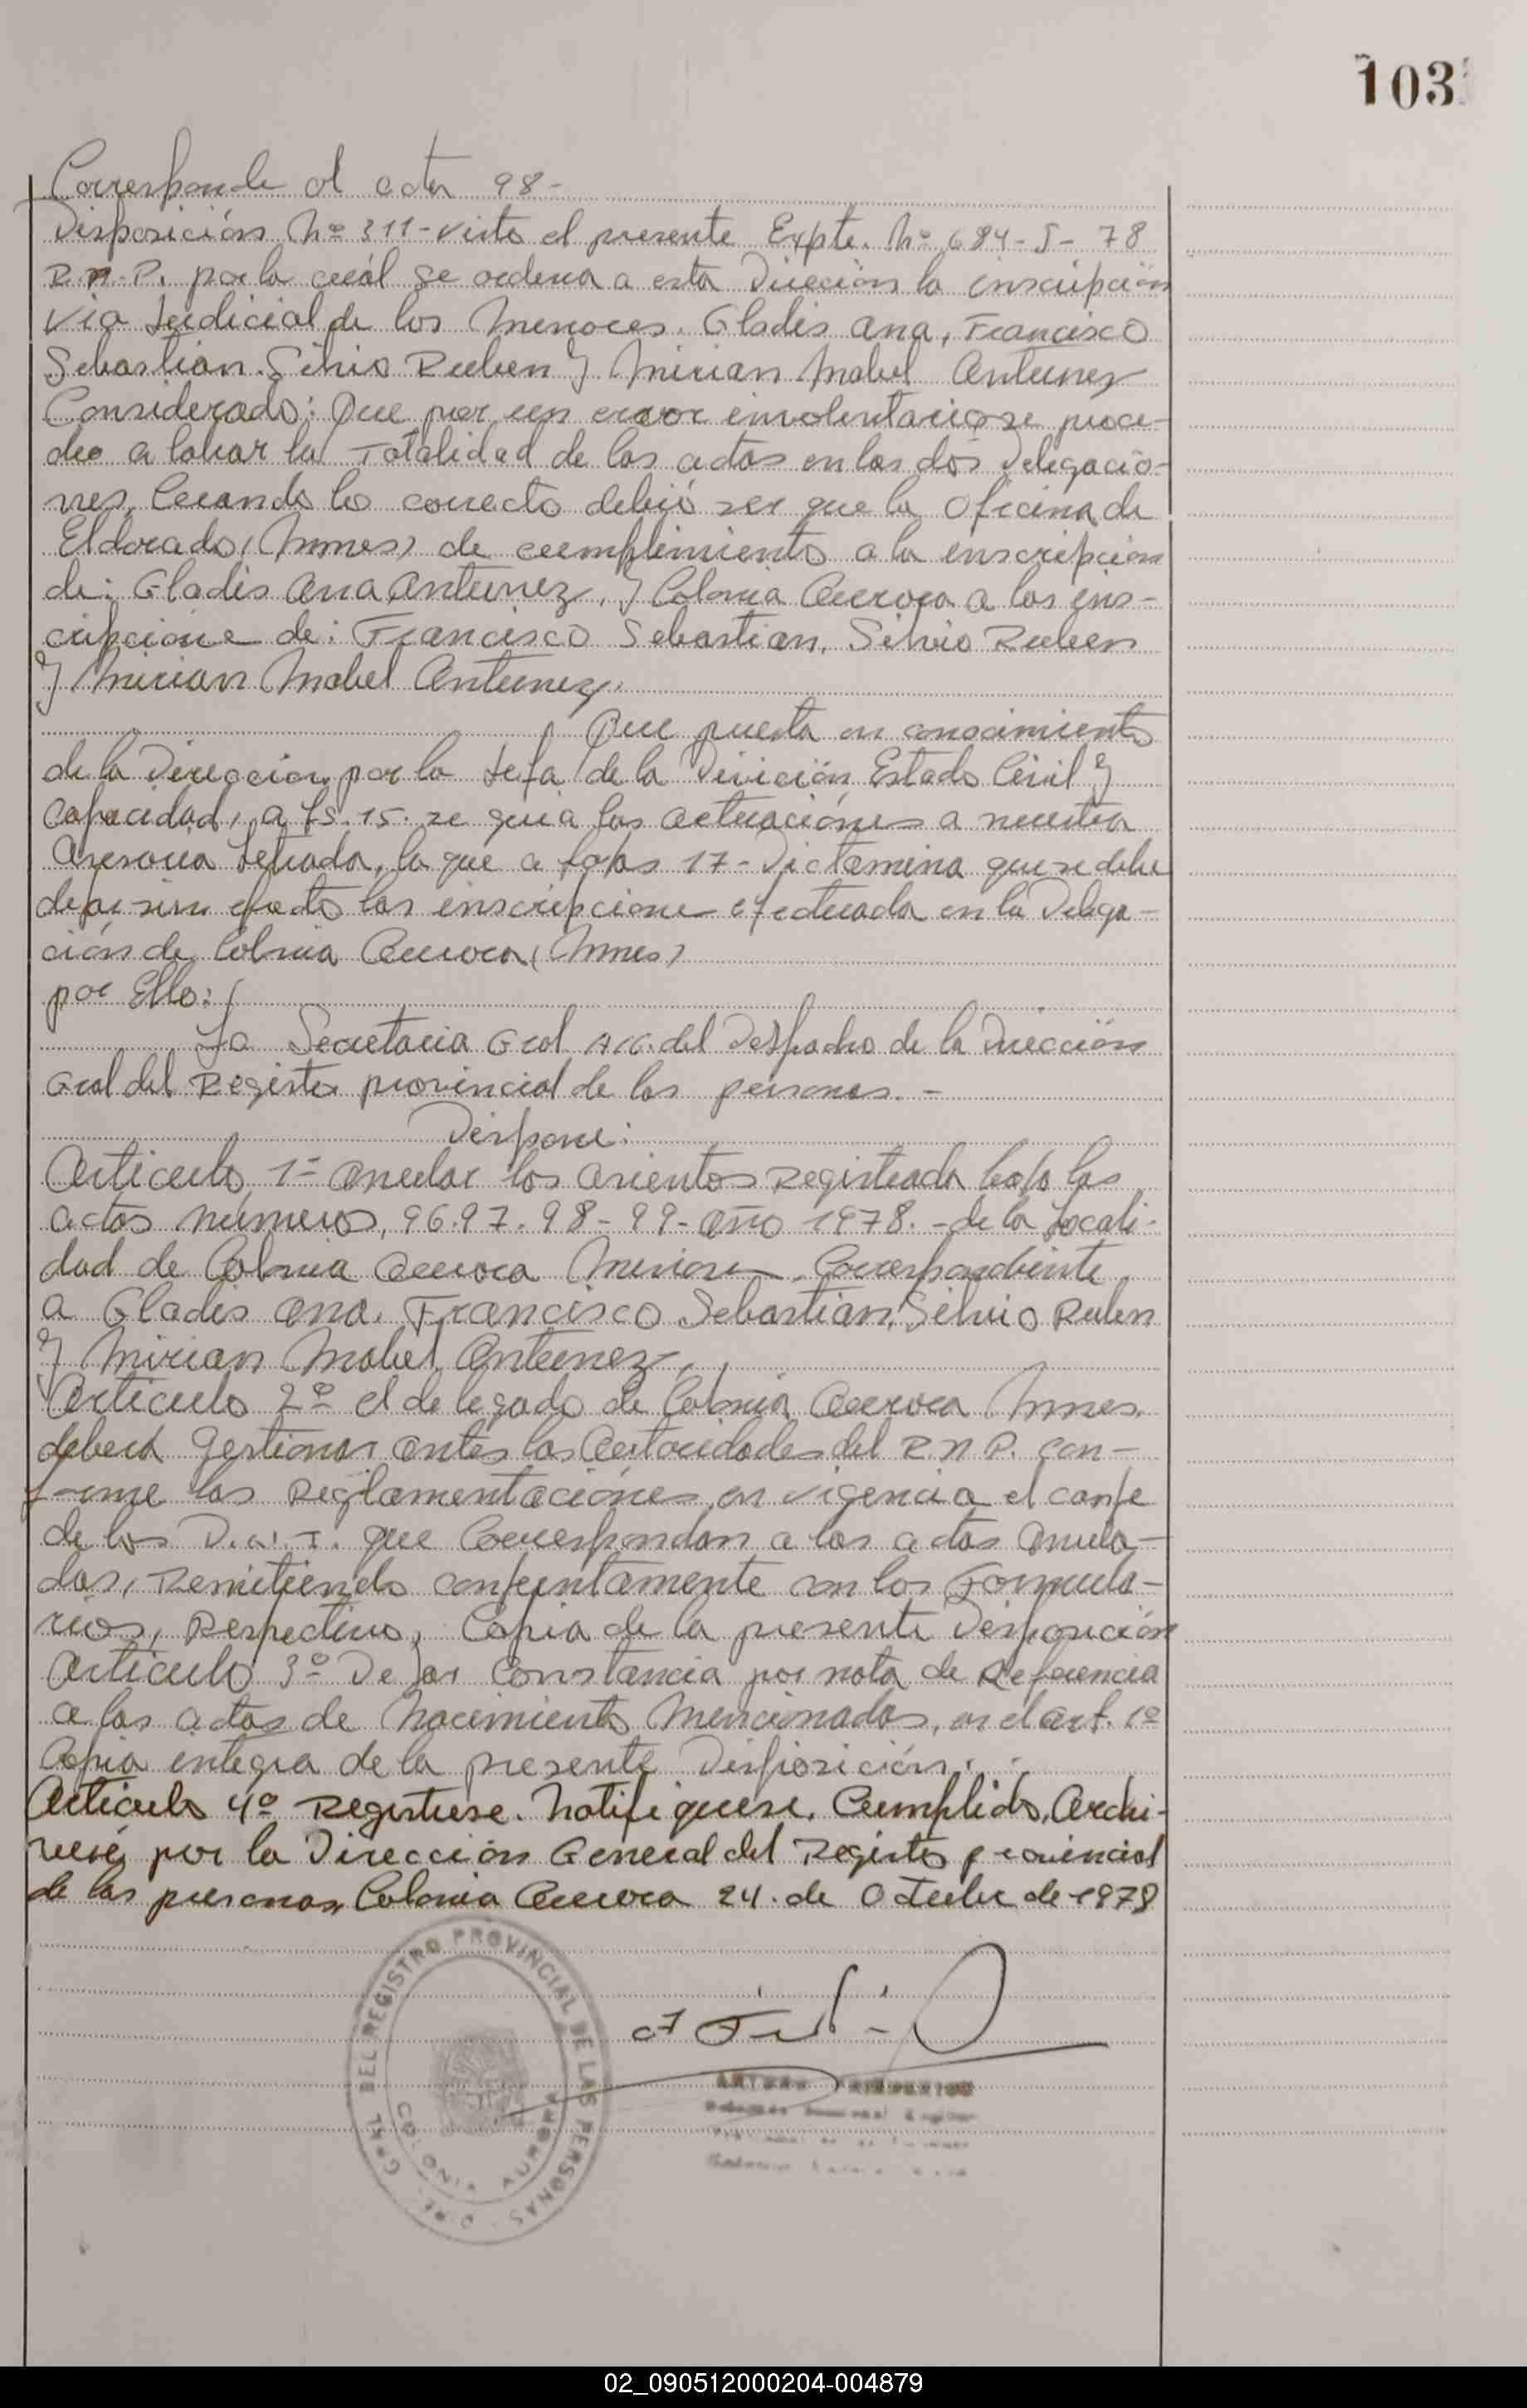 103
Corresponde al acta 98-
Disposición Nº 311-visto el presente Expte. Nº 684-S-78
R.N.P. por la cuál se ordena a esta Dirección la inscripción
via Judicial de los Menores. Gladis Ana, Francisco
Sebastian. Silvio Ruben y Mirian Mabel Antunez
Considerado: Que por un error involuntario se proce-
dio a labar la Totalidad de las actas en las dós Delegacio-
nes, Cuando lo correcto debió ser que la Oficina de
Eldorado, (Mnes) de cumplimiento a la inscripción
de: Gladis Ana Antunez, y Colonia Aurora a las ins-
cripcione de: Francisco Sebastian, Silvio Ruben
y Mirian Mabel Antunez.
Que puesta en conocimiento
de la Dirección por la Jefa de la División Estado Civil y
Capacidad, a fs. 15. se guia las actuaciónes a nuestra
Asesoria Letrada, la que a fojas 17-Dictamina que se debe
dejar sin efecto las inscripcione efectuada en la Delega-
ción de Colonia Aurora (Mnes)
por Ello:
La Secretaria Gral A/C. del Despacho de la Dirección
Gral del Registro provincial de las personas.-
Dispone:
Articulo 1º anular los asientos Registrada bajo las
actas números, 96.97.98-99-año 1978.-de la Locali-
dad de Colonia Aurora Misiones, Correspondiente
a Gladis Ana, Francisco Sebastian, Silvio Ruben
y Mirian Mabel Antunez,
Articulo 2º el delegado de Colonia Aurora Mnes.
deberá gestionar antes las Autoridades del R.N.P. con-
forme las Reglamentaciónes en vigencia el canje
de los D.N.I. que Correspondan a las actas anula-
das, Remitiendo conjuntamente con los Formula-
rios, Respectivo, Copia de la presente Disposición
Articulo 3º Dejar Constancia por nota de Referencia
a las actas de Nacimiento Mencionadas, en el art. 1º
Copia integra de la presente Disposición.
Articulo 4º Registrese. Notifiquese, Cumplido, Archi-
vese por la Dirección General del Registro provincial
de las personas, Colonia Aurora 24. de Octubre de 1979
DEL REGISTRO PROVINCIAL DE LAS PERSONAS
COLONIA AURORA
02_090512000204-004879